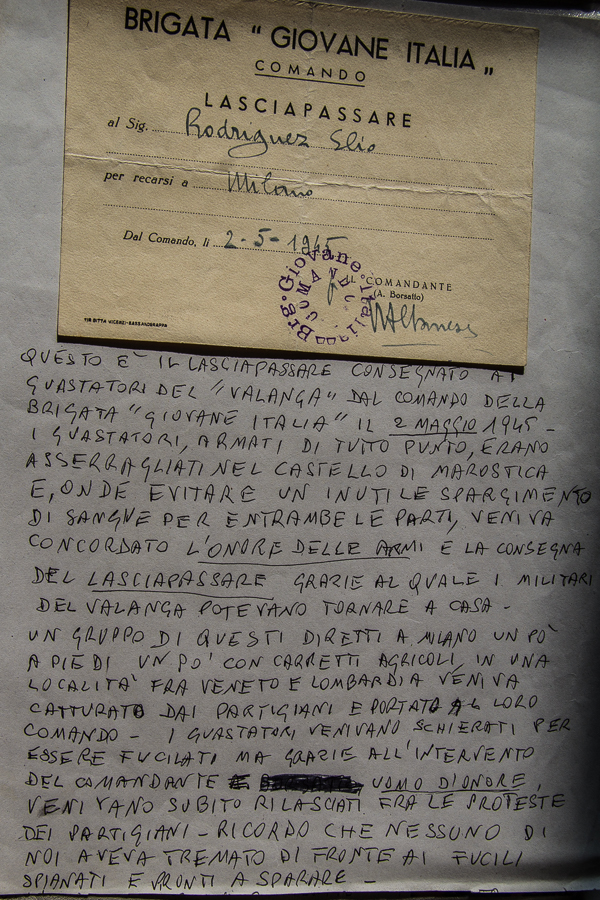 BRIGATA " GIOVANE ITALIA „
COMANDO
LASCIAPASSARE
al Sig. Rodriguez Elio
per recarsi a Milano
Dal Comando, li 2-5-1945
Brg. Giovane Italia
IL COMANDANTE
(A. Borsatto)
QUESTO E' IL LASCIAPASSARE CONSEGNATO AI
GUASTATORI DEL "VALANGA" DAL COMANDO DELLA
BRIGATA "GIOVANE ITALIA" IL 2 MAGGIO 1945 -
I GUASTATORI, ARMATI DI TUTTO PUNTO, ERANO
ASSERRAGLIATI NEL CASTELLO DI MAROSTICA
E, ONDE EVITARE UN INUTILE SPARGIMENTO
DI SANGUE PER ENTRAMBE LE PARTI, VENIVA
CONCORDATO L'ONORE DELLE ARMI E LA CONSEGNA
DEL LASCIAPASSARE GRAZIE AL QUALE I MILITARI
DEL VALANGA POTEVANO TORNARE A CASA -
UN GRUPPO DI QUESTI DIRETTI A MILANO UN PO'
A PIEDI UN PO' CON CARRETTI AGRICOLI, IN UNA
LOCALITA' FRA VENETO E LOMBARDIA VENIVA
CATTURATO DAI PARTIGIANI E PORTATO AL LORO
COMANDO - I GUASTATORI VENIVANO SCHIERATI PER
ESSERE FUCILATI MA GRAZIE ALL'INTERVENTO
DEL COMANDANTE UOMO D'ONORE,
VENIVANO SUBITO RILASCIATI FRA LE PROTESTE
DEI PARTIGIANI - RICORDO CHE NESSUNO DI
NOI AVEVA TREMATO DI FRONTE AI FUCILI
SPIANATI E PRONTI A SPARARE -